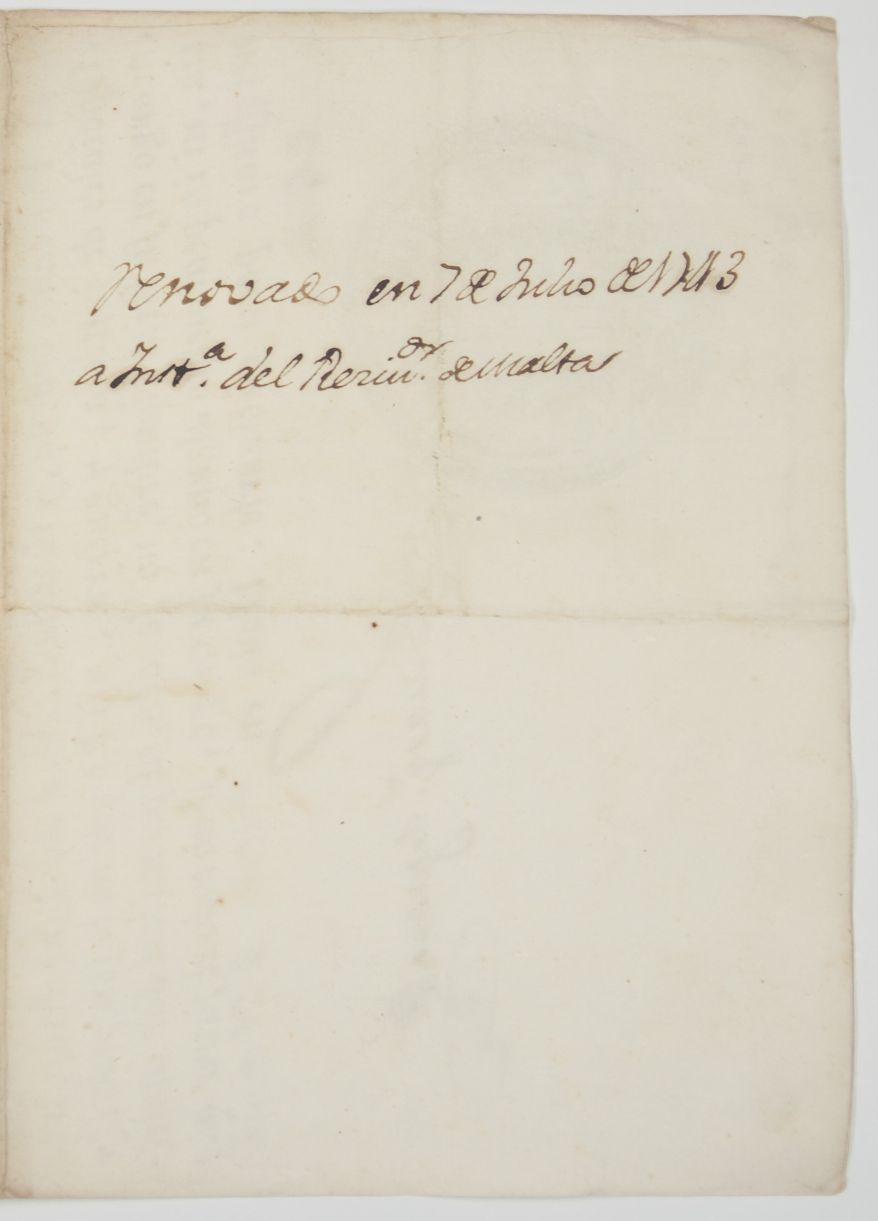 renovado en 7 de Julio de 1743
a Inst.ª del Recivi.dr de Malta